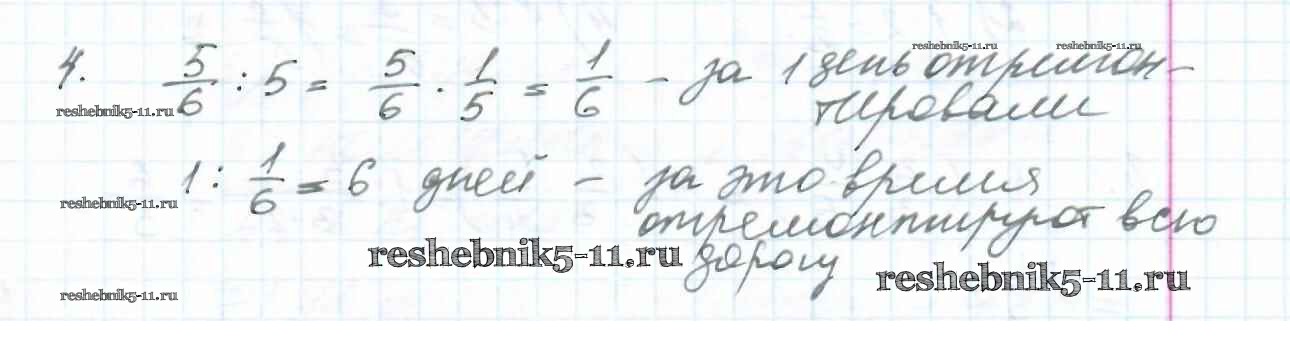 reshebnik5-11.ru reshebnik5-11.ru
4. 5/6 : 5 = 5/6 · 1/5 = 1/6 – за 1 день отремон-
reshebnik5-11.ru тировали
1 : 1/6 = 6 дней – за это время
reshebnik5-11.ru отремонтируют всю
reshebnik5-11.ru дорогу reshebnik5-11.ru
reshebnik5-11.ru